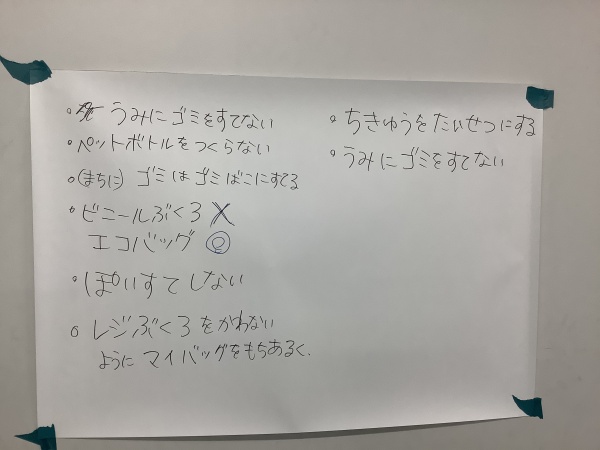 。うみにゴミをすてない
。ペットボトルをつくらない
。(まちに) ゴミはゴミばこにすてる
。ビニールぶくろ X
エコバッグ ◎
。ぽいすてしない
。レジぶくろをかわない
ようにマイバッグをもちあるく.
。ちきゅうをたいせつにする
。うみにゴミをすてない